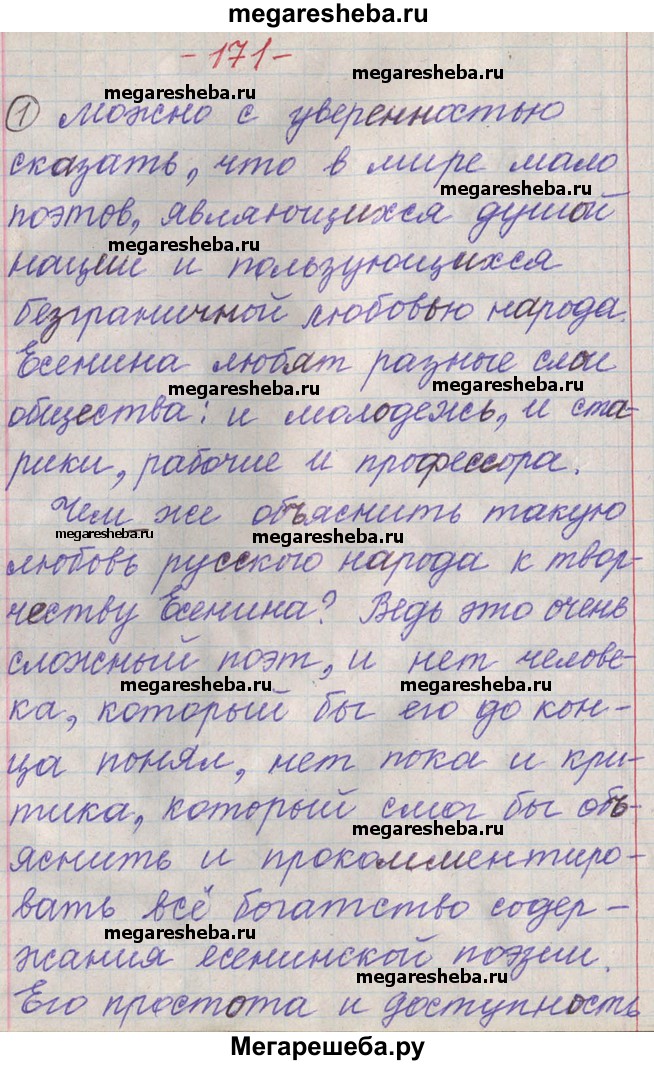 megaresheba.ru
-171-
megaresheba.ru
megaresheba.ru
① Можно с уверенностью
сказать, что в мире мало
megaresheba.ru
поэтов, являющихся душой
megaresheba.ru
нации и пользующихся
безграничной любовью народа.
Есенина любят разные слои
megaresheba.ru
megaresheba.ru
общества: и молодежь, и ста-
рики, рабочие и профессора.
Чем же объяснить такую
megaresheba.ru
megaresheba.ru
любовь русского народа к твор-
честву Есенина? Ведь это очень
сложный поэт, и нет челове-
megaresheba.ru
megaresheba.ru
ка, который бы его до кон-
ца понял, нет пока и кри-
тика, который смог бы объ-
megaresheba.ru
яснить и прокомментиро-
вать всё богатство содер-
megaresheba.ru
жания есенинской поэзии.
megaresheba.ru
Его простота и доступность
Мегарешеба.ру